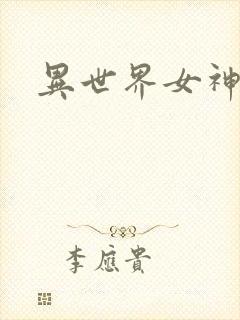 異世界女神
李應貴